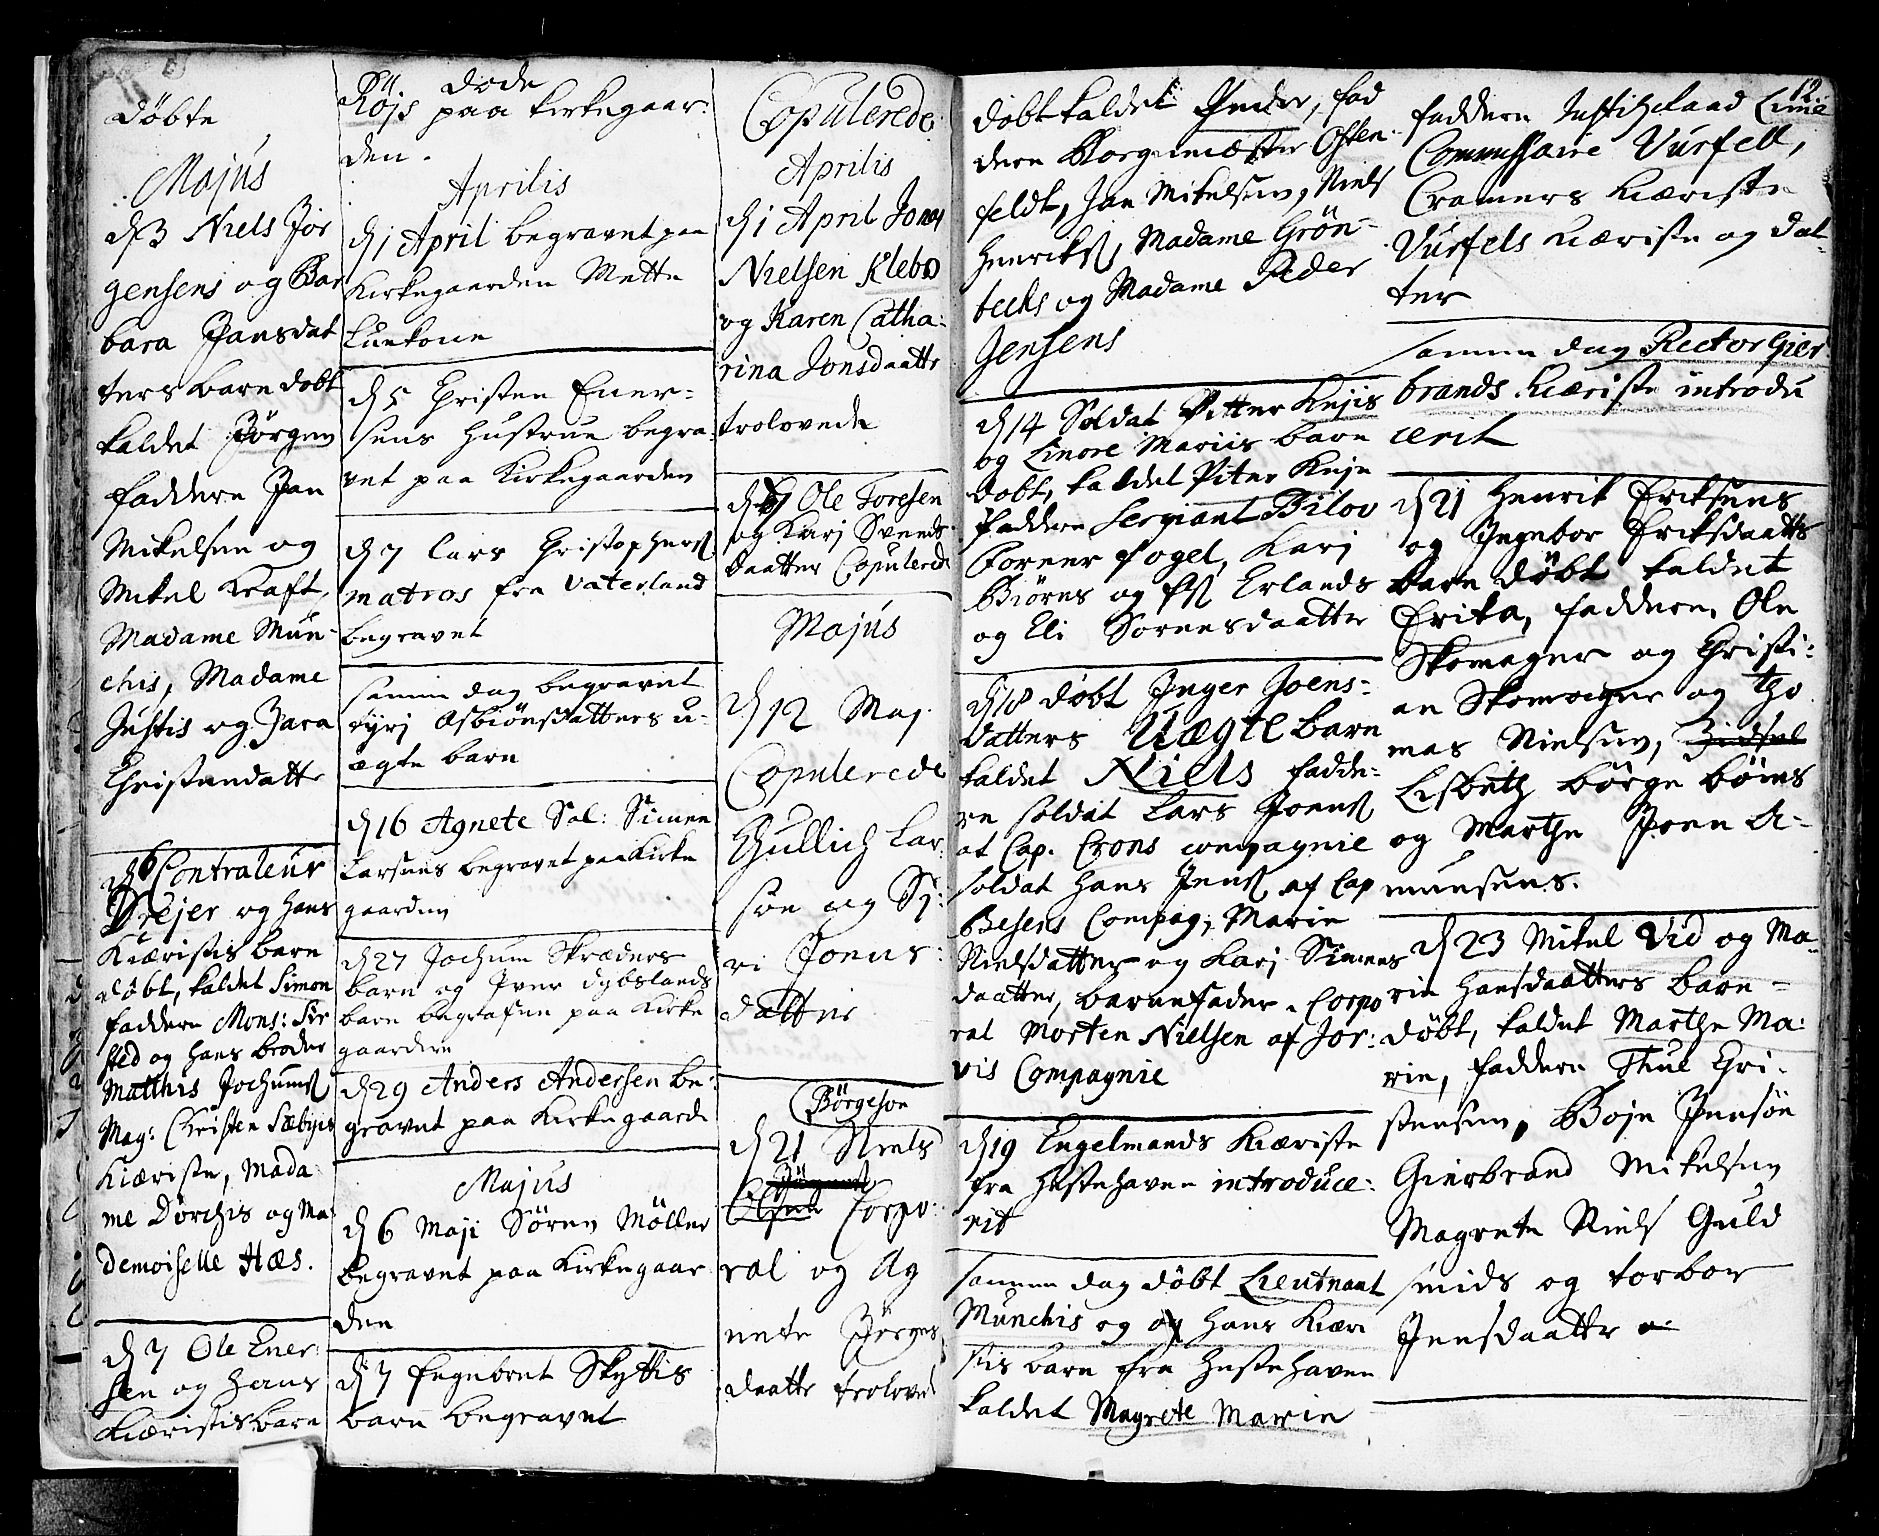 Døbte
Majus
d 3 Niels Jør
gensens og Bar
bara Jansdat
ters barn dobt
kaldet Jørgen
faddere Jan
Mikelsen og
Mikel Kraft,
Madame Mun-
chis, Madame
Justis og Zara
Christendatter
d 6 Contraleur
Drejer og hans
Kiæristis barn
døbt, kaldet Simon
faddere Mons: Sir
sted og hans broder
Matthis Jochums
Mag: Christen Sæbyis
Kiæriste, Mada
me Dorchis og Ma
demoiselle Hæs.
d 7 Ole Ener-
sen og hans
Kiæristis barn
Døde
Røjs paa Kirkegaar-
den.
Aprilis
d 1 April begravet paa
Kirkegaarden Mette
Luekone
d 5 Christen Ener-
sens Hustrue begra-
vet paa Kirkegaarden
d 7 Lars Christophers
matros fra Vaterland
begravet
samme dag begravet
Syrj Asbiønsdatters u-
ægte barn
d 16 Agnete Sal: Simen
Larsens begravet paa Kirke
gaarden
d 27 Jochum Skræders
barn og Iver dybslands
barn begrafven paa Kirke
gaarden
d 29 Anders Andersen be-
gravet paa Kirkegaarde
Majus
d 6 Maji Sören Möller
begravet paa Kirkegaar
den
d 7 Engebret Skyttis
barn begravet
Copulerede
Aprilis
d 1 April Jonas
Nielsen Klebo
og Karen Catha-
rina Jonsdaatter
trolovede
d 7 Ole Toresen
og Karj Svends
daatter Copulerede
Majus
d 12 Maj.
Copulerede
Gullich Lar
sön og Si-
ri Joens-
datter
Børgesøn
d 21 Niels
Olsen Corpo-
ral og Ag
nete Jörgens
daatter trolovede
dobt kaldet Peder, fad
dere Borgemæster Osten-
feldt, Jan Mikelsen, Niels
Henriks, Madame Grøn-
becks og Madame Peder
Jensens
d 14 Soldat Pitter Knjis
og Linore Mariis barn
dobt, kaldet Piter Knje
faddere Sergiant Bilov
Corner fogel, Karj
Biörns og Els Erlands
og Eli Sorensdaatter
d 18 döbt Inger Joens-
datters Uægte barn
kaldet Niels fadde-
re soldat Lars Joens
at Cap. Crons compagnie
soldat Hans Jens af Cap
Besens Compag, Marie
Nielsdatter og Karj Simens
daatter, barnefader Corpo
ral Morten Nielsen af Jor-
vis Compagnie
d 19 Engelmands Kiæriste
fra Hestehaven introduce-
rit
samme dag döbt Lieutnant
Munchis og hans Kiæri
stis barn fra Hestehaven
kaldet Magrete Marie
12
faddere Justizraad Linie
Commissaire Vurfell,
Cramers Kiæriste
Vurfels Kiæriste og dat-
ter
samme dag Rector Gier
brands Kiæriste introdu
cerit
d 21 Henrik Eriksens
og Ingebor Eriksdaatters
barn döbt kaldet
Erika, faddere, Ole
Skomager og Christi-
an Skomager og Tho
mas Nielsen, Zidsel
Lisbeth börge böiens
og Marthe Joen A-
munsens.
d 23 Mikel Vid og Ma-
rie Hansdaatters barn
döbt, kaldet Marthe Ma-
rie, faddere Thue Chri-
stensen, Boje Jensön
Gierbrand Mikelsen
Magrete Niels Guld
smids og torbor
Jensdaatter